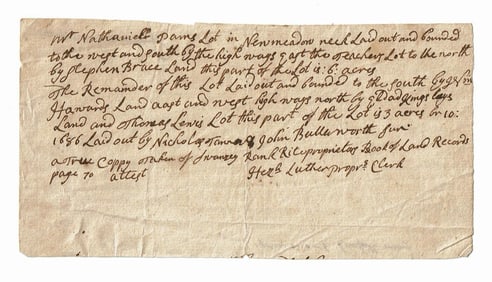 Mr Nathaniell Pains Lot in New meadow neck Laid out and bounded
to the west and south by the high ways east the Teachers Lot to the north
by Stephen Brace Land this part of the Lot is: 6 acres
The Remander of this Lot Laid out and bounded to the south by
Hawards Land and west high ways north by
Land and Thomas Lewis Lot this part of the Lot is 3 acres br 10:
1686 Laid out by Nicholas Tanner John Butterworth Sur
a True Coppy Taken of Swansey Rank Rite proprietors Book of Land Records
page 70 attest Hezh Luther propr Clerk